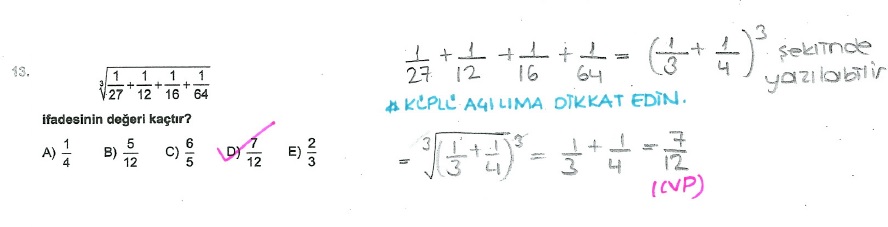 13.
∛(1/27 + 1/12 + 1/16 + 1/64)
ifadesinin değeri kaçtır?
A) 1/4 B) 5/12 C) 6/5 D) 7/12 E) 2/3
1/27 + 1/12 + 1/16 + 1/64 = (1/3 + 1/4)³ şeklinde
yazılabilir
# KÜPLÜ AÇILIMA DİKKAT EDİN.
= ∛(1/3 + 1/4)³ = 1/3 + 1/4 = 7/12
(CVP)